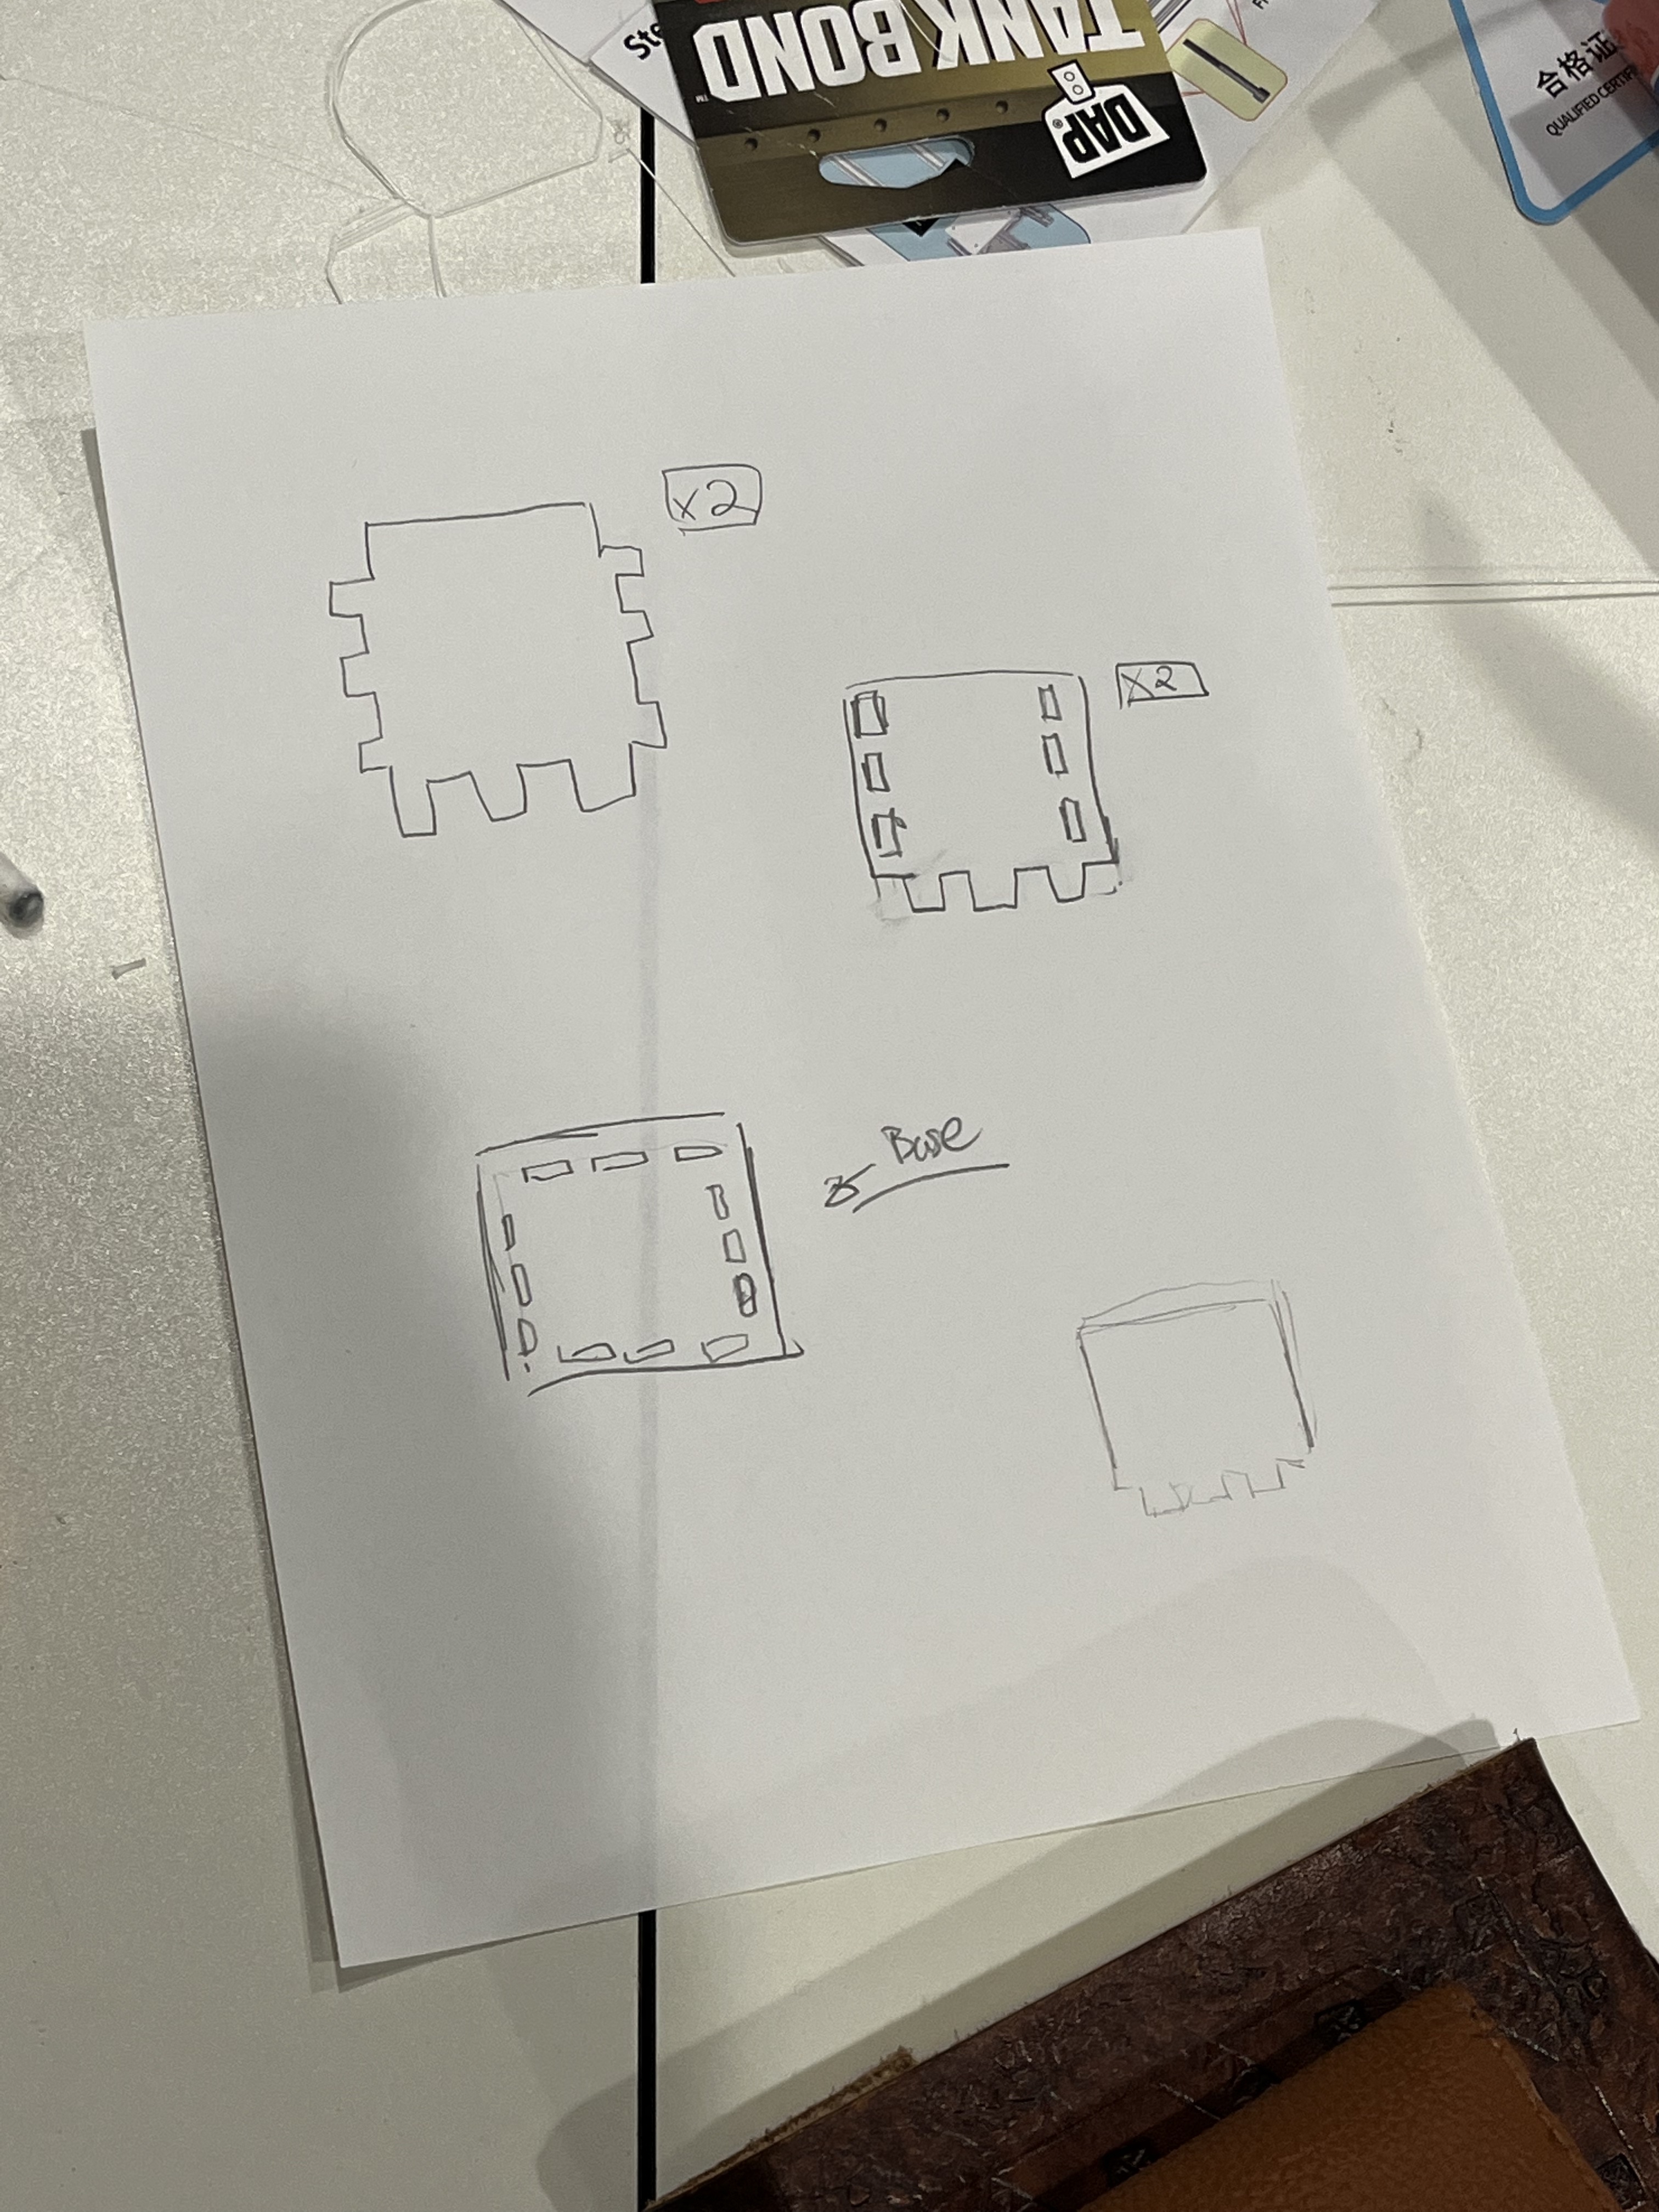 Ste
TANK BOND™
DAP®
合格证
QUALIFIED CERTIFI
X2
X2
Base